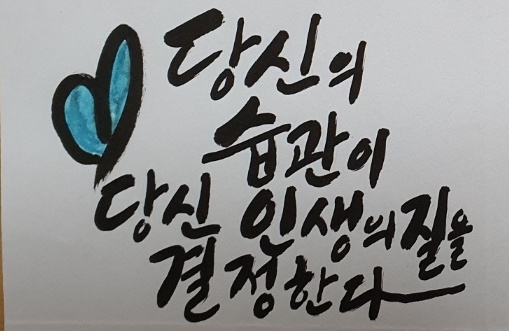 당신의
습관이
당신 인생의 질을
결정한다